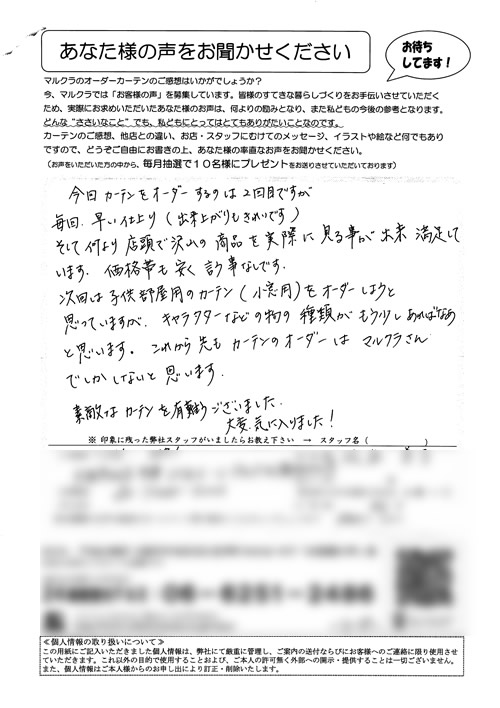 あなた様の声をお聞かせください
お待ち
してます！
マルクラのオーダーカーテンのご感想はいかがでしょうか？
今、マルクラでは「お客様の声」を募集しています。皆様のすてきな暮らしづくりをお手伝いさせていただく
ため、実際にお求めいただいたあなた様のお声は、何よりの励みとなり、また私どもの今後の参考となります。
どんな“ささいなこと”でも、私どもにとってはとてもありがたいことなのです。
カーテンのご感想、他店との違い、お店・スタッフにむけてのメッセージ、イラストや絵など何でもあり
ですので、どうぞご自由にお書きの上、あなた様の率直なお声をお聞かせください。
（お声をいただいた方の中から、毎月抽選で１０名様にプレゼントをお送りさせていただいております）
今回 カーテンをオーダーするのは2回目ですが
毎回、早い仕上り（出来上がりもきれいです）
そして何より店頭で沢山の商品を実際に見る事が出来 満足して
います。価格帯も安く 言う事なしです。
次回は子供部屋用のカーテン（小窓用）をオーダーしようと
思っていますが、キャラクターなどの物の種類がもう少しあればなぁ
と思います。これから先も カーテンのオーダーは マルクラさん
でしかしないと思います。
素敵な カーテンを有難うございました。
大変、気に入りました！
※ 印象に残った弊社スタッフがいましたらお教え下さい → スタッフ名（ ）
≪個人情報の取り扱いについて≫
この用紙にご記入いただきました個人情報は、弊社にて厳重に管理し、ご案内の送付ならびにお客様へのご連絡に限り使用させ
ていただきます。これ以外の目的で使用することおよび、ご本人の許可無く外部への開示・提供することは一切ございません。
また、個人情報はご本人様からのお申し出により訂正・削除いたします。